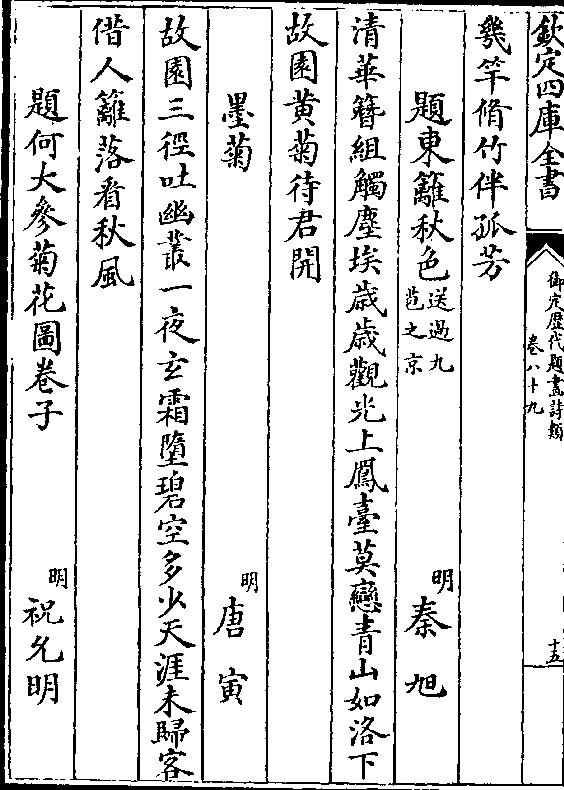 欽定四庫全書
御定歴代題畫詩類
卷八十九
十五
幾竿脩竹伴孤芳
題東籬秋色送過九苞之京 明 秦旭
清華簪組觸塵埃歳歳觀光上鳳臺莫戀青山如洛下
故園黄菊待君開
墨菊 明 唐寅
故園三徑吐幽叢一夜玄霜墮碧空多少天涯未歸客
借人籬落看秋風
題何大參菊花圖卷子 明 祝允明